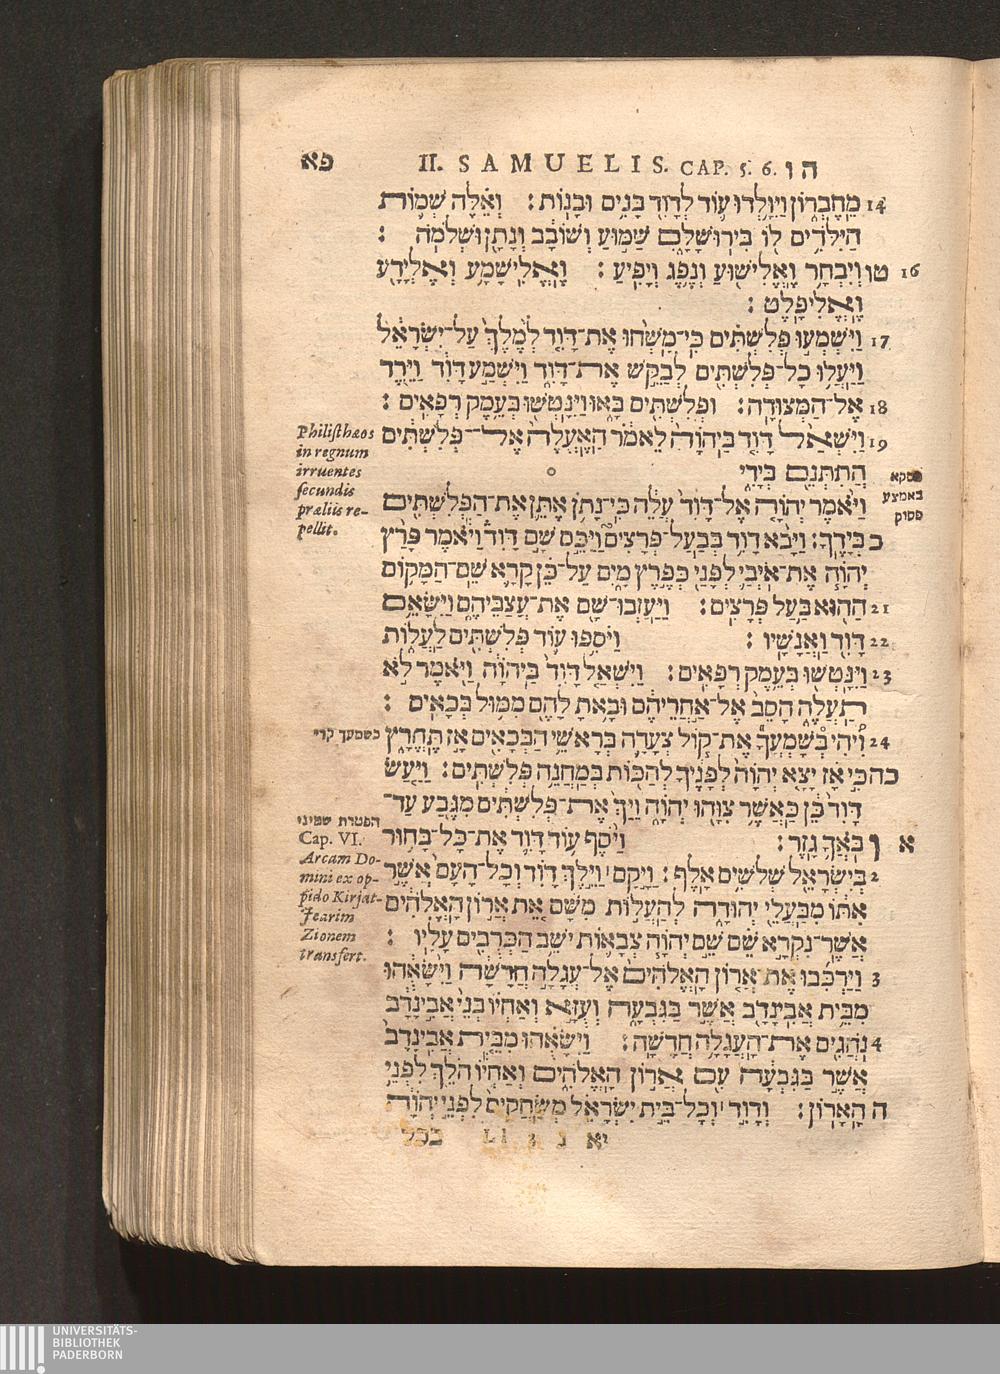 פא II. SAMUELIS. CAP. 5. 6. ה ו
14 מֵֽחֶבְר֑וֹן וַיִּוָּ֥לְדוּ ע֛וֹד לְדָוִ֖ד בָּנִ֥ים וּבָנֽוֹת׃ וְאֵ֗לֶּה שְׁמ֛וֹת
הַיִּלֹּדִ֥ים ל֖וֹ בִּירוּשָׁלָ֑͏ִם שַׁמּ֣וּעַ וְשׁוֹבָ֔ב וְנָתָ֖ן וּשְׁלֹמֹֽה׃
16 טו וְיִבְחָ֥ר וֶאֱלִישׁ֖וּעַ וְנֶ֥פֶג וְיָפִֽיעַ׃ וֶאֱלִישָׁמָ֥ע וְאֶלְיָדָ֖ע
וֶאֱלִיפָֽלֶט׃
17 וַיִּשְׁמְע֣וּ פְלִשְׁתִּ֗ים כִּי־מָשְׁח֨וּ אֶת־דָּוִ֤ד לְמֶ֙לֶךְ֙ עַל־יִשְׂרָאֵ֔ל
וַיַּעֲל֥וּ כָל־פְּלִשְׁתִּ֖ים לְבַקֵּ֣שׁ אֶת־דָּוִ֑ד וַיִּשְׁמַ֣ע דָּוִ֔ד וַיֵּ֖רֶד
18 אֶל־הַמְּצוּדָֽה׃ וּפְלִשְׁתִּ֖ים בָּ֑אוּ וַיִּנָּטְשׁ֖וּ בְּעֵ֥מֶק רְפָאִֽים׃
19 וַיִּשְׁאַ֨ל דָּוִ֤ד בַּֽיהוָה֙ לֵאמֹ֔ר הַאֶֽעֱלֶה֙ אֶל־פְּלִשְׁתִּ֔ים
הֲתִתְּנֵ֖ם בְּיָדִ֑י
Philisthæos
in regnum
irruentes
secundis
præliis re-
pellit.
פסקא
באמצע
פסוק
וַיֹּ֨אמֶר יְהוָ֤ה אֶל־דָּוִד֙ עֲלֵ֔ה כִּֽי־נָתֹ֥ן אֶתֵּ֛ן אֶת־הַפְּלִשְׁתִּ֖ים
כ בְּיָדֶֽךָ׃ וַיָּבֹ֨א דָוִ֥ד בְּבַֽעַל־פְּרָצִים֮ וַיַּכֵּ֣ם שָׁ֣ם דָּוִד֒ וַיֹּ֕אמֶר פָּרַ֨ץ
יְהוָ֧ה אֶת־אֹיְבַ֛י לְפָנַ֖י כְּפֶ֣רֶץ מָ֑יִם עַל־כֵּ֗ן קָרָ֛א שֵֽׁם־הַמָּק֥וֹם
21 הַה֖וּא בַּ֥עַל פְּרָצִֽים׃ וַיַּעַזְבוּ־שָׁ֖ם אֶת־עֲצַבֵּיהֶ֑ם וַיִּשָּׂאֵ֥ם
22 דָּוִ֖ד וַאֲנָשָֽׁיו׃ וַיֹּסִ֥פוּ ע֛וֹד פְּלִשְׁתִּ֖ים לַֽעֲל֑וֹת
23 וַיִּנָּֽטְשׁ֖וּ בְּעֵ֥מֶק רְפָאִֽים׃ וַיִּשְׁאַ֤ל דָּוִד֙ בַּֽיהוָ֔ה וַיֹּ֖אמֶר לֹ֣א
תַעֲלֶ֑ה הָסֵב֙ אֶל־אַ֣חֲרֵיהֶ֔ם וּבָ֥אתָ לָהֶ֖ם מִמּ֥וּל בְּכָאִֽים׃
24 וִ֠יהִי בְּֽשָׁמְעֲךָ֞ אֶת־ק֧וֹל צְעָדָ֛ה בְּרָאשֵׁ֥י הַבְּכָאִ֖ים אָ֣ז תֶּחֱרָ֑ץ
כשמעך קרי
כה כִּ֣י אָ֗ז יָצָ֤א יְהוָה֙ לְפָנֶ֔יךָ לְהַכּ֖וֹת בְּמַחֲנֵ֥ה פְלִשְׁתִּֽים׃ וַיַּ֤עַשׂ
דָּוִד֙ כֵּ֔ן כַּאֲשֶׁ֥ר צִוָּ֖הוּ יְהוָ֑ה וַיַּךְ֙ אֶת־פְּלִשְׁתִּ֔ים מִגֶּ֖בַע עַד־
א ו בֹּאֲךָ֥ גָֽזֶר׃ וַיֹּ֨סֶף ע֥וֹד דָּוִ֛ד אֶת־כָּל־בָּח֥וּר
הפטרת שמיני
Cap. VI.
Arcam Do-
mini ex op-
pido Kirjat-
Jearim
Zionem
transfert.
2 בְּיִשְׂרָאֵ֖ל שְׁלֹשִׁ֥ים אָֽלֶף׃ וַיָּ֣קָם ׀ וַיֵּ֣לֶךְ דָּוִ֗ד וְכָל־הָעָם֙ אֲשֶׁ֣ר
אִתּ֔וֹ מִֽבַּעֲלֵ֖י יְהוּדָ֑ה לְהַעֲל֣וֹת מִשָּׁ֗ם אֵ֚ת אֲר֣וֹן הָאֱלֹהִ֔ים
אֲשֶׁר־נִקְרָ֣א שֵׁ֗ם שֵׁ֣ם יְהוָ֧ה צְבָא֛וֹת יֹשֵׁ֥ב הַכְּרֻבִ֖ים עָלָֽיו׃
3 וַיַּרְכִּ֜בוּ אֶת־אֲר֤וֹן הָֽאֱלֹהִים֙ אֶל־עֲגָלָ֣ה חֲדָשָׁ֔ה וַיִּשָּׂאֻ֔הוּ
מִבֵּ֥ית אֲבִינָדָ֖ב אֲשֶׁ֣ר בַּגִּבְעָ֑ה וְעֻזָּ֣א וְאַחְי֗וֹ בְּנֵי֙ אֲבִ֣ינָדָ֔ב
4 נֹהֲגִ֖ים אֶת־הָעֲגָלָ֥ה חֲדָשָֽׁה׃ וַיִּשָּׂאֻ֗הוּ מִבֵּ֤ית אֲבִֽינָדָב֙
אֲשֶׁ֣ר בַּגִּבְעָ֔ה עִ֖ם אֲר֣וֹן הָאֱלֹהִ֑ים וְאַחְי֕וֹ הֹלֵ֖ךְ לִפְנֵ֥י
ה הָאָרֽוֹן׃ וְדָוִ֣ד ׀ וְכָל־בֵּ֣ית יִשְׂרָאֵ֗ל מְשַֽׂחֲקִים֙ לִפְנֵ֣י יְהוָ֔ה
יא בכל
UNIVERSITÄTS-
BIBLIOTHEK
PADERBORN